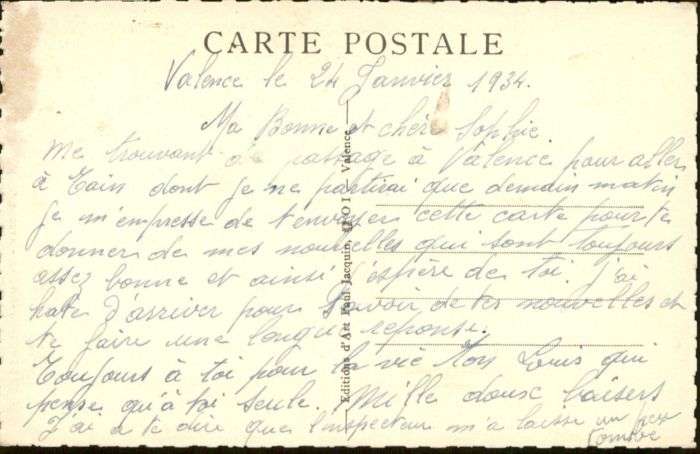 CARTE POSTALE
Valence le 24 Janvier 1934.
Ma Bonne et chère Sophie
Me trouvant de passage à Valence pour aller
à Tain dont je ne partirai que demain matin
je m'empresse de t'envoyer cette carte pour te
donner de mes nouvelles qui sont toujours
assez bonne et ainsi j'espère de toi. J'ai
hate d'arriver pour savoir de tes nouvelles et
te faire une longue reponse.
Toujours à toi pour la vie ton Louis qui
pense qu'à toi seule. Mille doux baisers
J'ai a te dire que l'inspecteur m'a laissé un peu
Editions d'Art Paul Jacquin, Valence